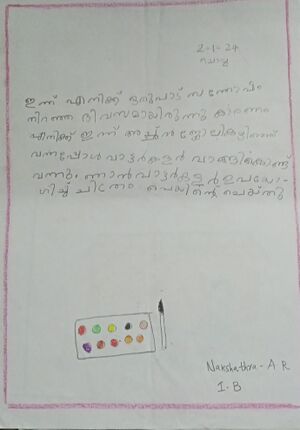 2-1-24
ചൊവ്വ
ഇന്ന് എനിക്ക് ഒരുപാട് സന്തോഷം
നിറഞ്ഞ ദിവസമായിരുന്നു കാരണം
എനിക്ക് ഇന്ന് അച്ഛൻ ജോലികഴിഞ്ഞ്
വന്നപ്പോൾ വാട്ടർകളർ വാങ്ങിക്കൊണ്ട്
വന്നു. ഞാൻ വാട്ടർകളർ ഉപയോ-
ഗിച്ച് ചിത്രം പെയിന്റ് ചെയ്തു
Nakshathra - A R
I - B